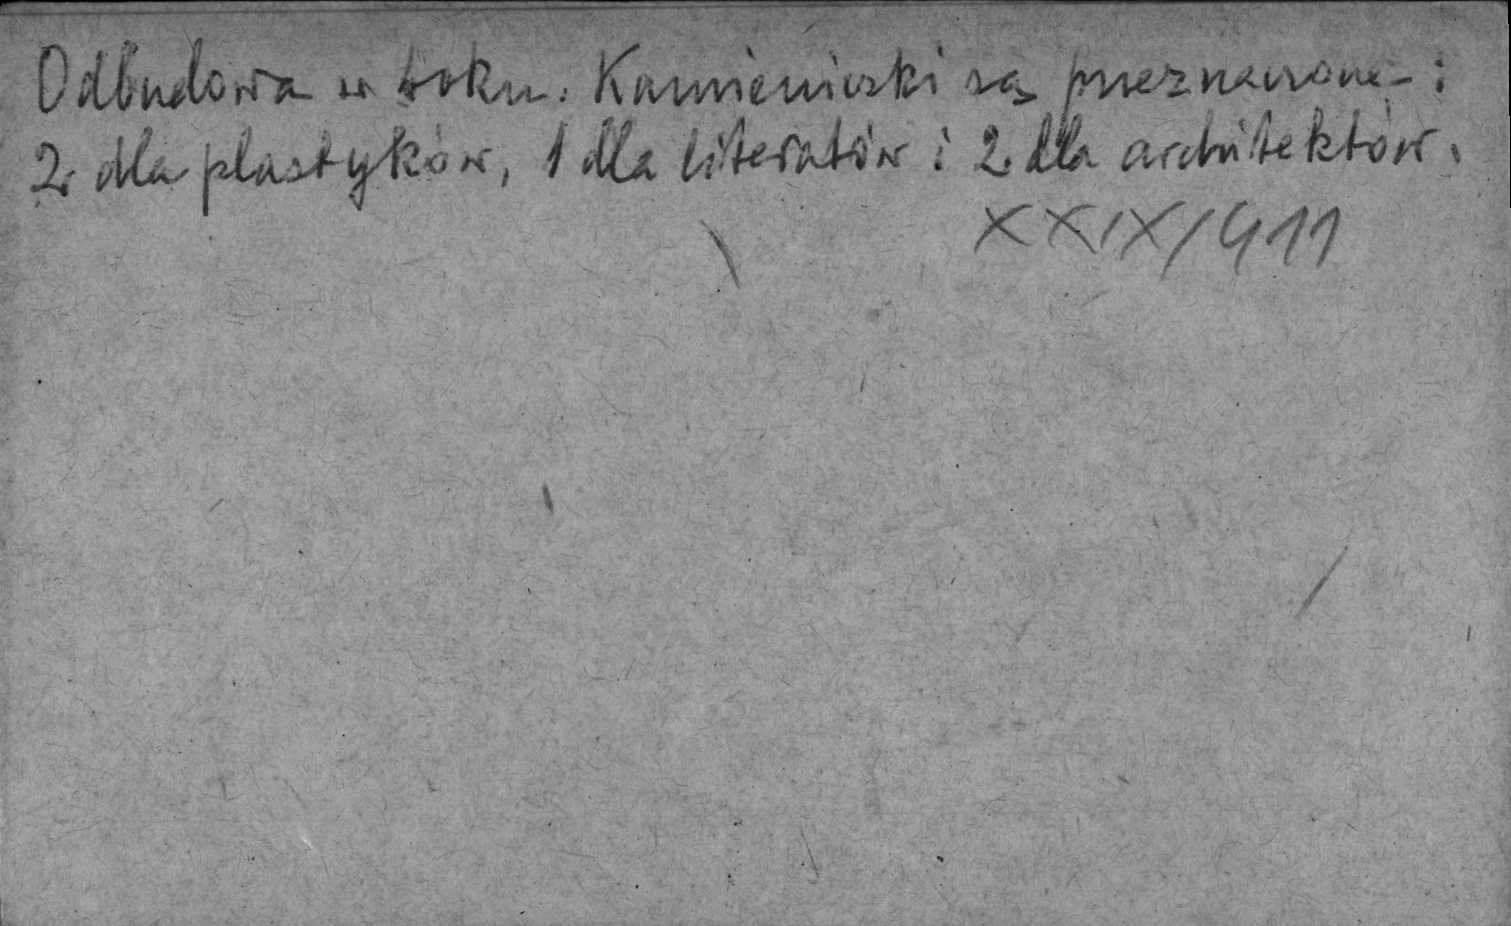 Odbudowa w toku. Kamieniczki są przeznaczone :
2 dla plastyków, 1 dla literatów i 2 dla architektów.
XXIX/411